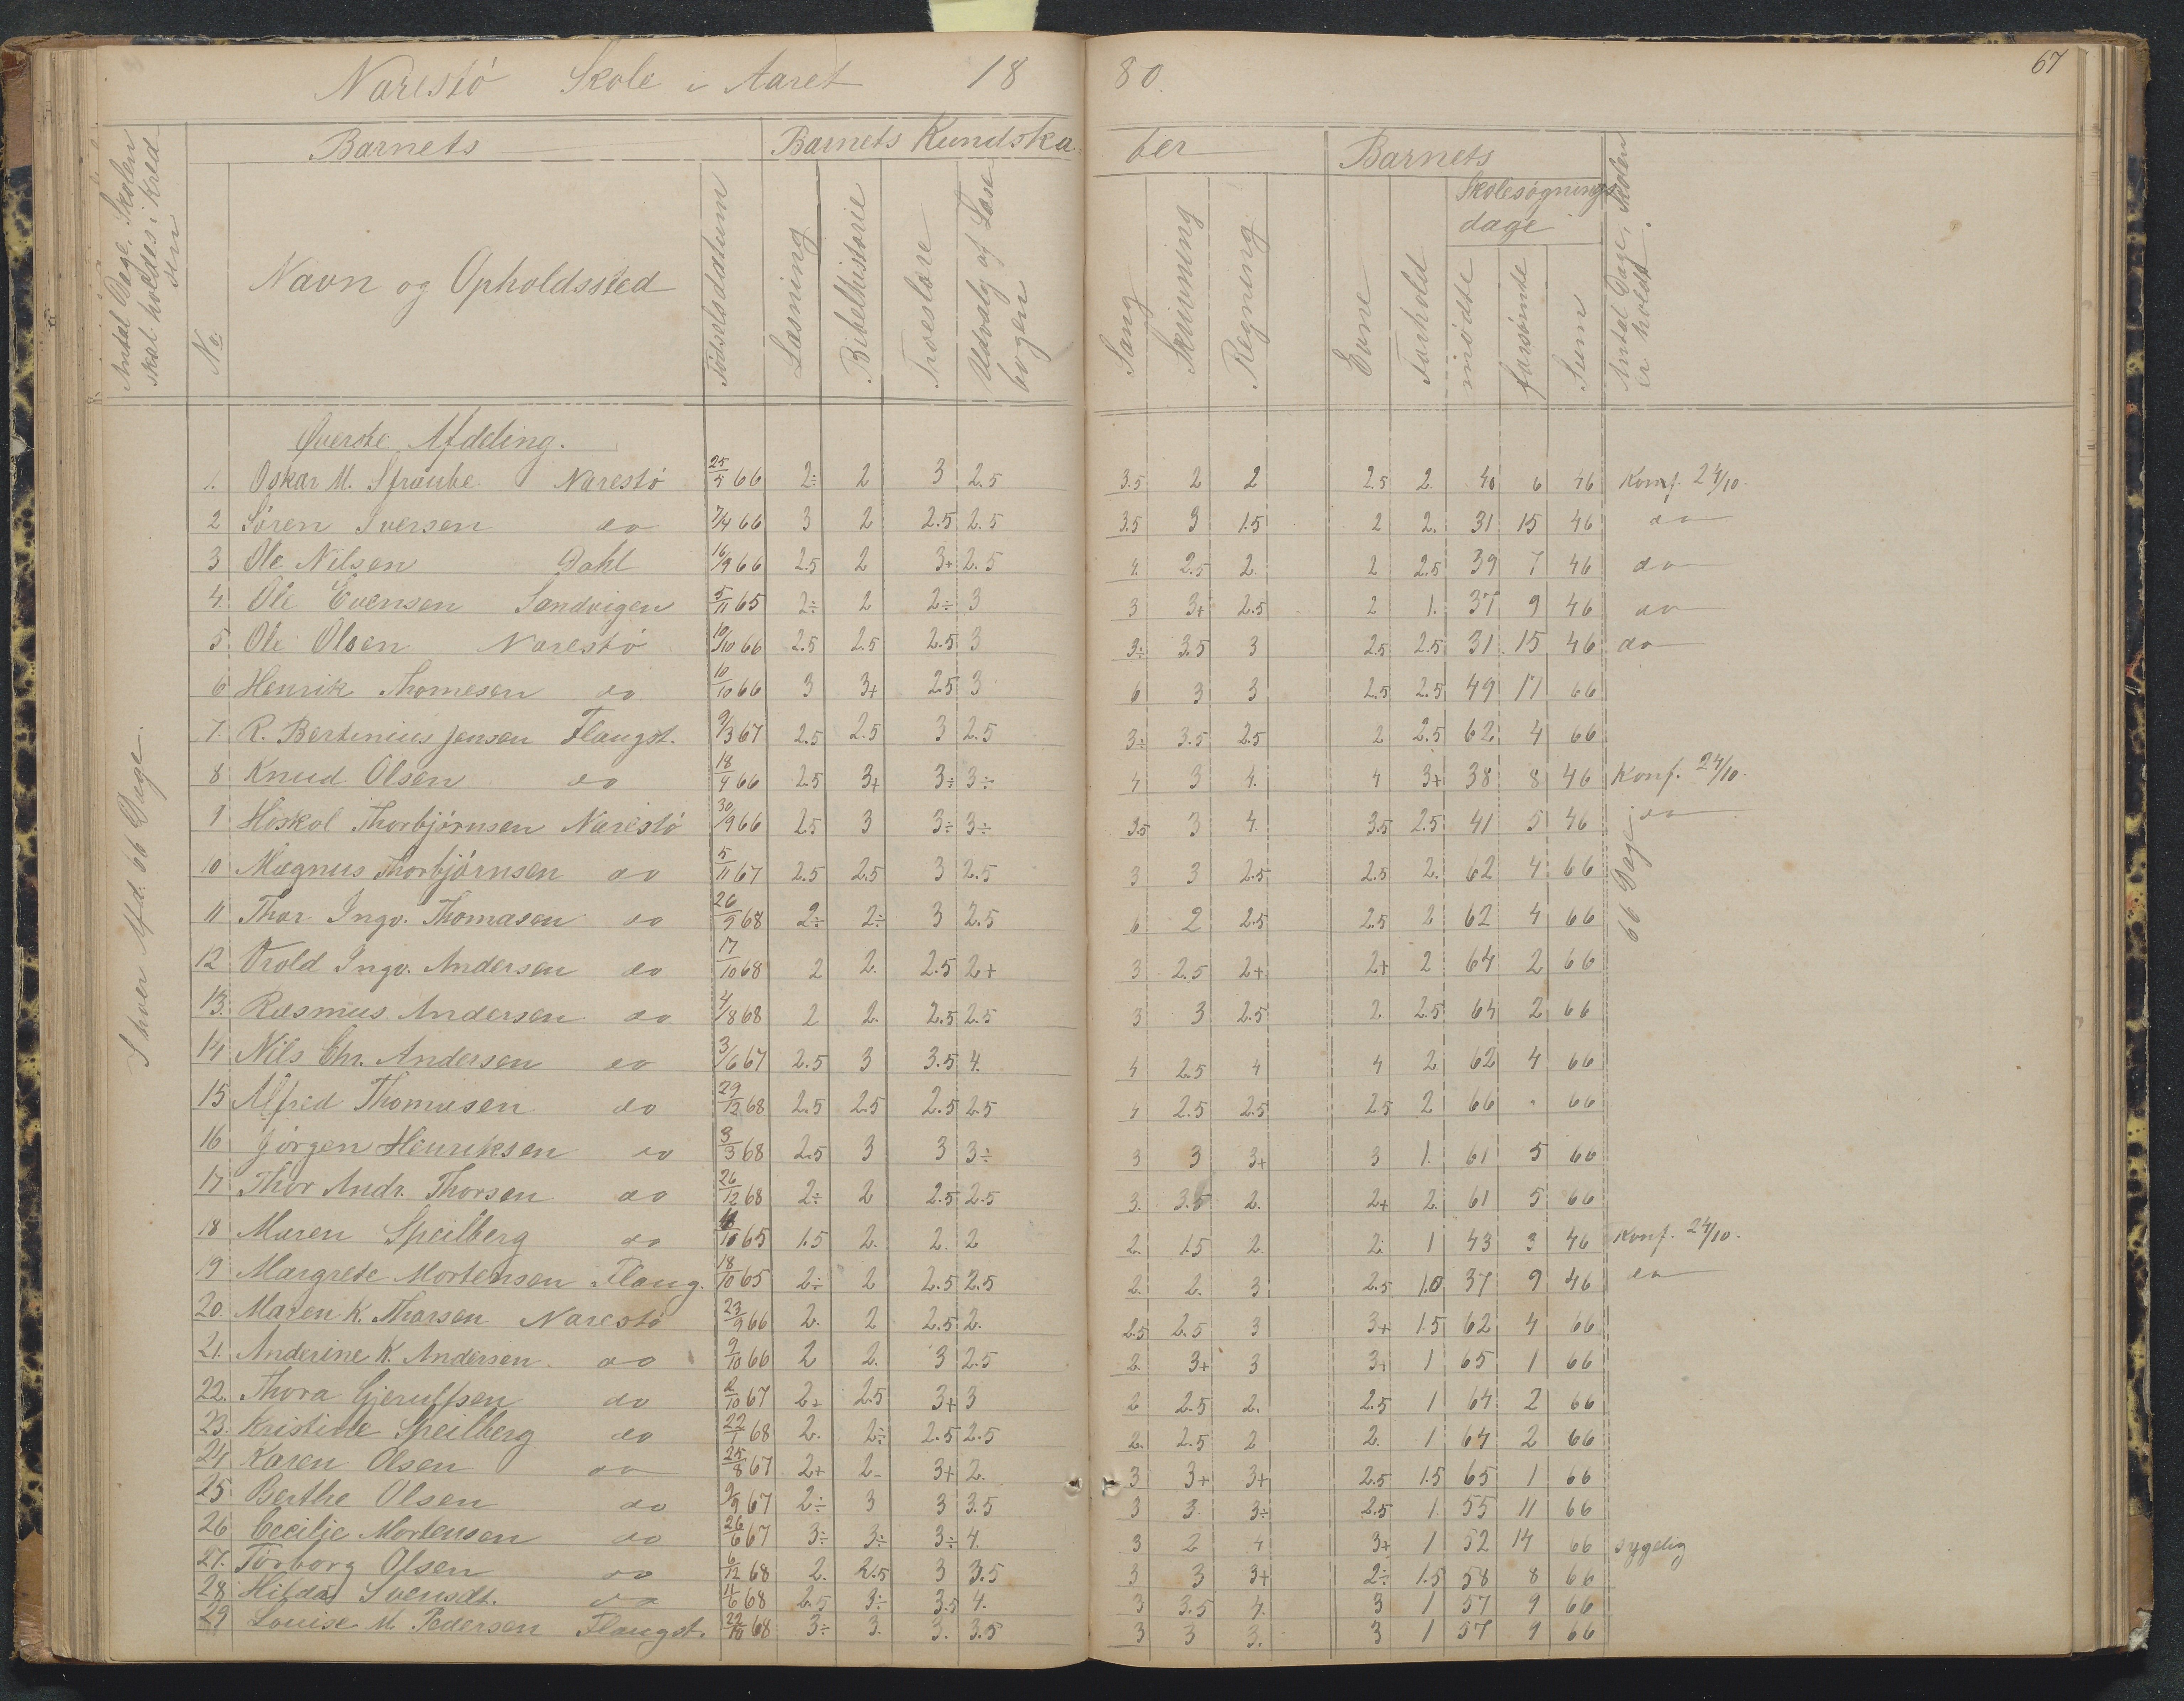 Narestö Skole i Aaret 1880.
67
Antal Dage, Skolen skal holdes i Kredsen
Barnets
Barnets Kundskaber
Barnets
No.
Navn og Opholdssted
Födselsdatum
Læsning
Bibelhistorie
Troeslære
Udvalg af Læsebogen
Sang
Skrivning
Regning
Evne
Forhold
Skolesøgningsdage
mødte
forsømte
Sum
Antal Dage, Skolen er holdt.
Øverste Afdeling.
Ihver Afd. 66 Dage.
66 Dage
1. Oskar M. Straube Narestö 25/5 66 2÷ 2 3 2.5 3.5 2 2 2.5 2. 40 6 46 Konf. 24/10.
2 Søren Iversen do 7/4 66 3 2 2.5 2.5 3.5 3 1.5 2 2. 31 15 46 do
3 Ole Nilsen Dahl 16/9 66 2.5 2 3+ 2.5 4. 2.5 2. 2 2.5 39 7 46 do
4. Ole Evensen Sandvigen 5/11 65 2÷ 2 2÷ 3 3 3+ 2.5 2 1. 37 9 46 do
5 Ole Olsen Narestö 10/10 66 2.5 2.5 2.5 3 3÷ 3.5 3 2.5 2.5 31 15 46 do
6 Henrik Thomesen do 10/10 66 3 3+ 2.5 3 6 3 3 2.5 2.5 49 17 66
7. R. Bertinius Jensen Flaugst. 9/3 67 2.5 2.5 3 2.5 3÷ 3.5 2.5 2 2.5 62 4 66
8 Knud Olsen do 18/4 66 2.5 3+ 3÷ 3÷ 4 3 4. 4 3+ 38 8 46 Konf. 24/10.
9 Höskol Thorbjørnsen Narestö 30/9 66 2.5 3 3÷ 3÷ 3.5 3 4 3.5 2.5 41 5 46 do
10 Magnus Thorbjörnsen do 5/11 67 2.5 2.5 3 2.5 3 3 2.5 2.5 2. 62 4 66
11 Thor Ingv. Thomasen do 26/9 68 2÷ 2÷ 3 2.5 6 2 2.5 2.5 2 62 4 66
12 Trold Ingv. Andersen do 17/10 68 2 2. 2.5 2+ 3 2.5 2+ 2+ 2 64 2 66
13. Rasmus Andersen do 4/8 68 2 2. 2.5 2.5 3 3 2.5 2. 2.5 64 2 66
14 Nils Chr. Andersen do 3/6 67 2.5 3 3.5 4. 4 2.5 4 4 2 62 4 66
15 Alfred Thomasen do 29/12 68 2.5 2.5 2.5 2.5 4 2.5 2.5 2.5 2 66 . 66
16 Jörgen Henriksen do 3/3 68 2.5 3 3 3÷ 3 3 3+ 3 1. 61 5 66
17 Thor Andr. Thorsen do 26/12 68 2÷ 2 2.5 2.5 3. 3.5 2. 2+ 2. 61 5 66
18 Maren Speilberg do /10 65 1.5 2. 2. 2 2. 1.5 2. 2. 1 43 3 46 Konf. 24/10.
19 Margrete Mortensen Flaug. 18/10 65 2÷ 2 2.5 2.5 2. 2. 3 2.5 1.0 37 9 46 do
20. Maren K. Thorsen Narestö 23/9 66 2. 2 2.5 2. 2.5 2.5 3 3+ 1.5 62 4 66
21. Anderine K. Andersen do 9/10 66 2 2. 3 2.5 2. 3+ 3 3+ 1 65 1 66
22. Thora Gjerulfsen do 2/10 67 2+ 2.5 3+ 3 2 2.5 2. 2.5 1 64 2 66
23. Kristine Speilberg do 22/1 68 2. 2÷ 2.5 2.5 2. 2.5 2 2. 1 64 2 66
24 Karen Olsen do 25/8 67 2+ 2 3+ 2. 3 3+ 3+ 2.5 1.5 65 1 66
25 Berthe Olsen do 9/9 67 2÷ 3 3 3.5 3 3. 3÷ 2.5 1. 55 11 66
26 Cecilie Mortensen do 26/6 67 3÷ 3÷ 3÷ 4. 3 2 4 3+ 1 52 14 66 sygelig
27. Torborg Olsen do 6/12 68 2. 2.5 3 3.5 3 3 3+ 2÷ 1.5 58 8 66
28 Hilda Svensdt. do 11/6 68 2.5 3÷ 3.5 4. 3 3.5 4. 3 1 57 9 66
29 Louise M. Pedersen Flaugst. 22/10 68 3÷ 3. 3. 3.5 3 3 3. 3 1 57 9 66